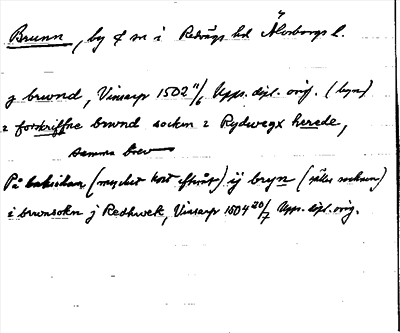 Brunn, by & sn i Redvägs hd Älvsborgs l.
j brwnd, Vinsarp 1502 11/6 Upps. dipl. orig. (byn)
z forskriffne brwnd socken z Rydwegx herede,
samma brev
På baksidan (mycket kort efteråt) ij bryn (gäller socknen)
i brwnsokn j Redhwek, Vinsarp 1504 20/7 Upps. dipl. orig.